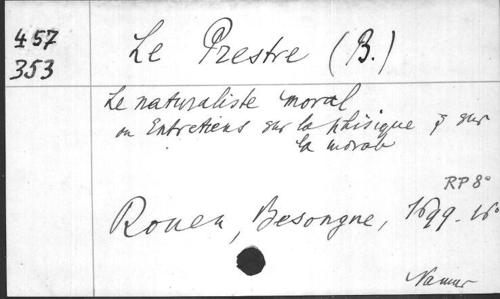 457
353
Le Prestre (B.)
Le naturaliste moral
ou Entretiens sur la phisique & sur
la morale
RP 8°
Rouen, Besongne, 1699. 16°
Namur